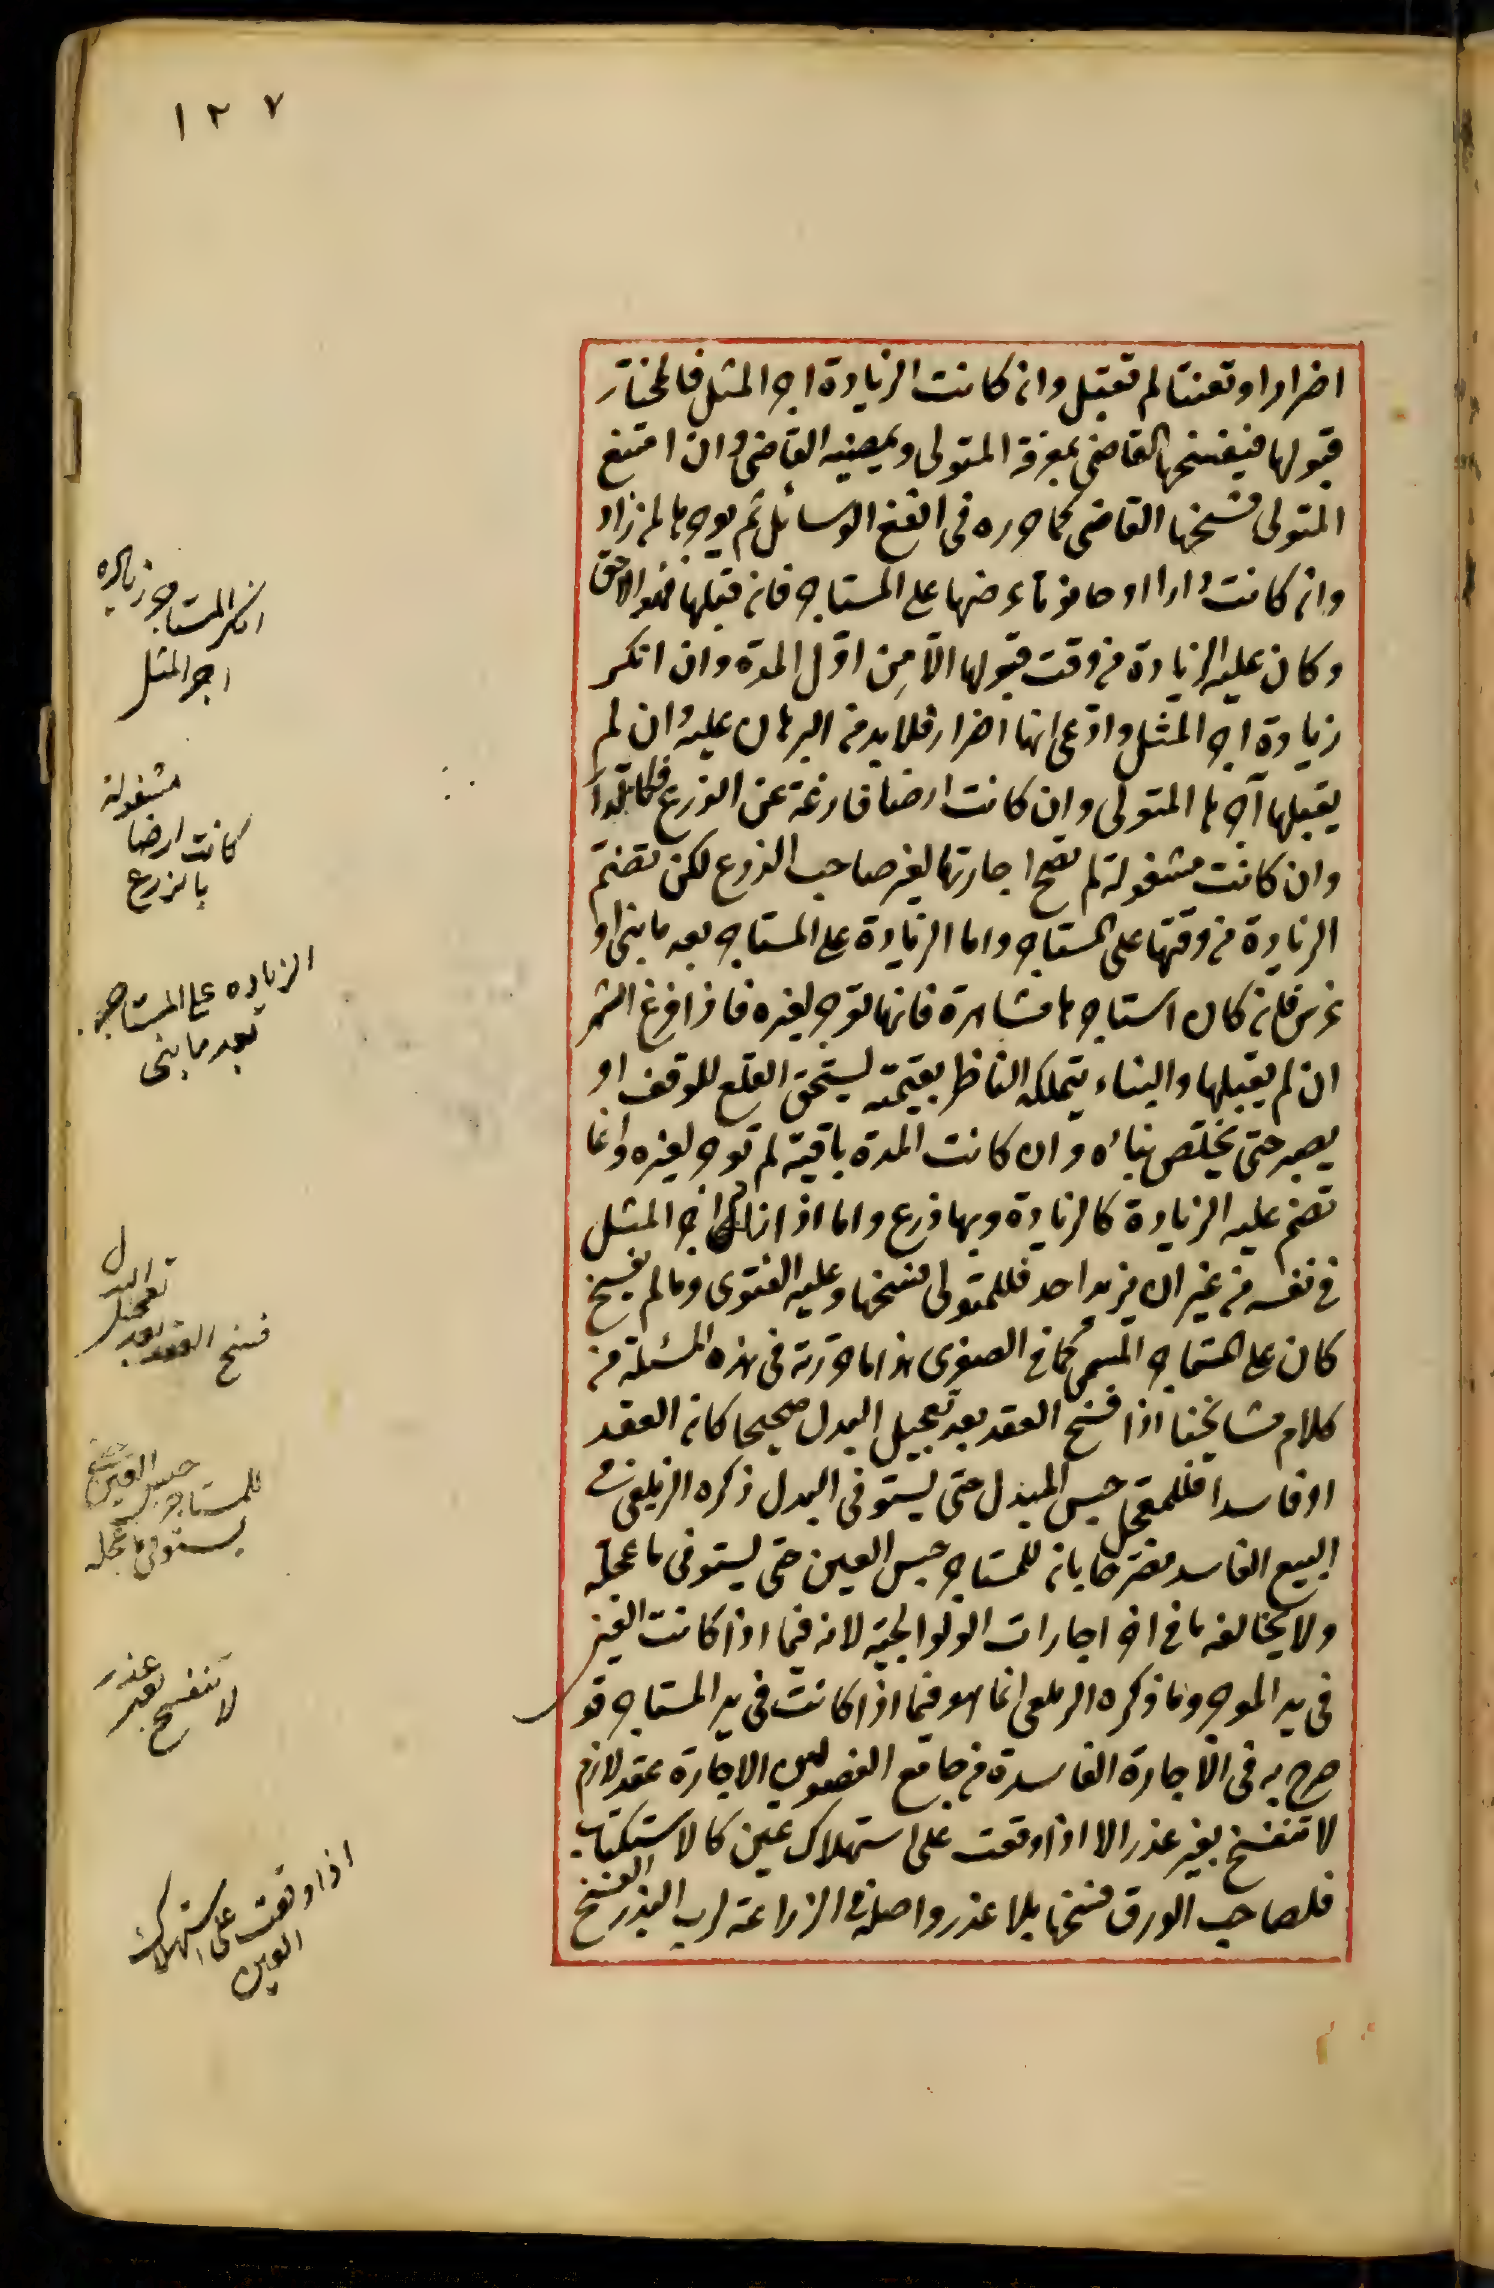 ١٢٧
اضرارا وتعنتا لم تقبل وان كانت الزيادة اجر المثل فالمختار
قبولها فيفسخها القاضى بمعرفة المتولى ويمضيه القاضى وان امتنع
المتولى فسخها القاضى كما حرره فى انفع الوسائل ثم يوجرها لمن زاد
وان كانت دارا او حانوتا عرضها على المستاجر فان قبلها فهو الاحق
وكان عليه الزيادة من وقت قبولها لا من اول المدة وان انكر
زيادة اجر المثل وادعى انها اضرار فلا بد من البرهان عليه وان لم
يقبلها آجرها المتولى وان كانت ارضا فارغة عن الزرع فكالدار
وان كانت مشغولة لم تصح اجارتها لغير صاحب الزرع لكن تضم
الزيادة من وقتها على المستاجر واما الزيادة على المستاجر بعد ما بنى او
غرس فان كان استاجرها مشاهرة فانها توجر لغيره فاذا فرغ الشهر
ان لم يقبلها والبناء يتملكه الناظر بقيمته يستحق القلع للوقف او
يصبر حتى يتخلص بناؤه وان كانت المدة باقية لم توجر لغيره وانما
تضم عليه الزيادة كالزيادة وبها زرع واما اذا زاد اجر المثل
فى نفسه من غير ان يزيد احد فللمتولى فسخها وعليه الفتوى وما لم يفسخ
كان على المستاجر المسمى كما فى الصغرى هذا ما حررته فى هذه المسئلة من
كلام مشايخنا اذا فسخ العقد بعد تعجيل البدل صحيحا كان العقد
او فاسدا فللمعجل حبس المبدل حتى يستوفى البدل ذكره الزيلعى فى
البيع الفاسد مصرحا بان للمستاجر حبس العين حتى يستوفى ما عجله
ولا يخالفه ما فى اخر اجارات الولوالجية لانه فيما اذا كانت العين
فى يد الموجر وما ذكره الزيلعى انما هو فيما اذا كانت فى يد المستاجر قد
صرح به فى الاجارة الفاسدة من جامع الفصولين الاجارة عقد لازم
لا تنفسخ بغير عذر الا اذا وقعت على استهلاك عين كالاستكتاب
فلصاحب الورق فسخها بلا عذر واصله فى الزراعة لرب البذر الفسخ
انكر المستاجر زيادة
اجر المثل
مشغولة
كانت ارضا
بالزرع
الزياده على المستاجر
بعد ما بنى
فسخ العقد بعد
تعجيل البدل
للمستاجر حبس العين حتى
يستوفى ما عجله
لا تنفسخ بغير عذر
اذا وقعت على استهلاك
العين